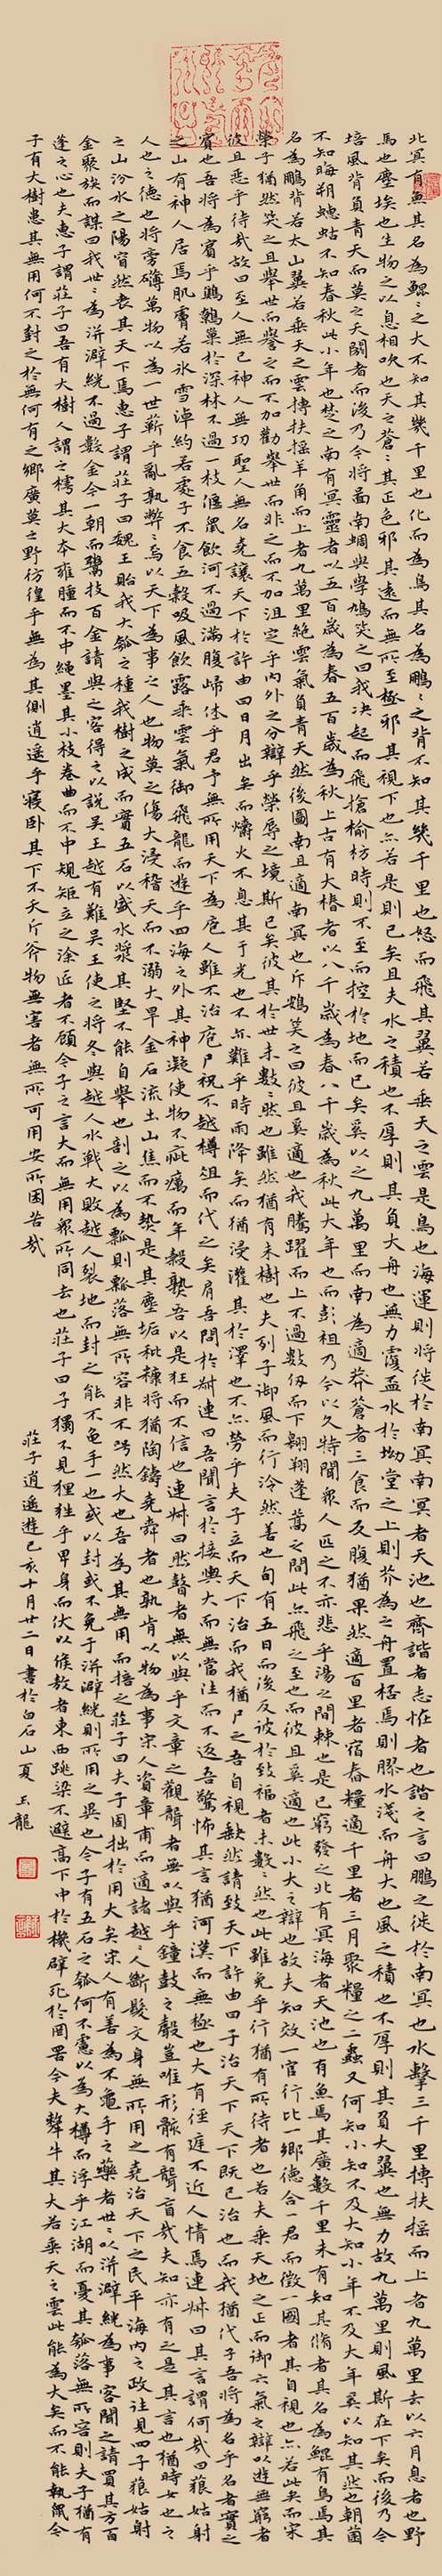 北冥有魚其名為鯤〻之大不知其幾千里也化而為鳥其名為鵬〻之背不知其幾千里也怒而飛其翼若垂天之雲是鳥也海運則將徙於南冥南冥者天池也齊諧者志怪者也諧之言曰鵬之徙於南冥也水擊三千里摶扶搖而上者九萬里去以六月息者也野
馬也塵埃也生物之以息相吹也天之蒼〻其正色邪其遠而無所至極邪其視下也亦若是則已矣且夫水之積也不厚則其負大舟也無力覆盃水於坳堂之上則芥為之舟置杯焉則膠水淺而舟大也風之積也不厚則其負大翼也無力故九萬里則風斯在下矣而後乃今
培風背負青天而莫之夭閼者而後乃今將啚南蜩與學鳩笑之曰我決起而飛搶榆枋時則不至而控於地而已矣奚以之九萬里而南為適莽蒼者三食而反腹猶果然適百里者宿舂糧適千里者三月聚糧之二蟲又何知小知不及大知小年不及大年奚以知其然也朝菌
不知晦朔蟪蛄不知春秋此小年也楚之南有冥靈者以五百歲為春五百歲為秋上古有大椿者以八千歲為春八千歲為秋此大年也而彭祖乃今以久特聞眾人匹之不亦悲乎湯之問棘也是已窮發之北有冥海者天池也有魚焉其廣數千里未有知其脩者其名為鯤有鳥焉其
名為鵬背若太山翼若垂天之雲摶扶搖羊角而上者九萬里絕雲氣負青天然後圖南且適南冥也斥鴳笑之曰彼且奚適也我騰躍而上不過數仞而下翱翔蓬蒿之間此亦飛之至也而彼且奚適也此小大之辯也故夫知效一官行比一鄉德合一君而徵一國者其自視也亦若此矣而宋
榮子猶然笑之且舉世而譽之而不加勸舉世而非之而不加沮定乎內外之分辯乎榮辱之境斯已矣彼其於世未數〻然也雖然猶有未樹也夫列子御風而行泠然善也旬有五日而後反彼於致福者未數〻然也此雖免乎行猶有所待者也若夫乘天地之正而御六氣之辯以遊無窮者
彼且惡乎待哉故曰至人無己神人無功聖人無名堯讓天下於許由曰日月出矣而爝火不息其于光也不亦難乎時雨降矣而猶浸灌其於澤也不亦勞乎夫子立而天下治而我猶尸之吾自視缺然請致天下許由曰子治天下天下既已治也而我猶代子吾將為名乎名者實之
賓也吾將為賓乎鷦鷯巢於深林不過一枝偃鼠飲河不過滿腹歸休乎君予無所用天下為庖人雖不治庖尸祝不越樽俎而代之矣肩吾問於叔連曰吾聞言於接輿大而無當往而不返吾驚怖其言猶河漢而無極也大有徑庭不近人情焉連叔曰其言謂何哉曰藐姑射
之山有神人居焉肌膚若冰雪淖約若處子不食五穀吸風飲露乘雲氣御飛龍而遊乎四海之外其神凝使物不疵癘而年穀熟吾以是狂而不信也連叔曰然瞽者無以與乎文章之觀聾者無以與乎鐘鼓之聲豈唯形骸有聾盲哉夫知亦有之是其言也猶時女也之
人也之德也將旁礴萬物以為一世蘄乎亂孰弊〻焉以天下為事之人也物莫之傷大浸稽天而不溺大旱金石流土山焦而不熱是其塵垢秕糠將猶陶鑄堯舜者也孰肯以物為事宋人資章甫而適諸越〻人斷髮文身無所用之堯治天下之民平海內之政往見四子藐姑射
之山汾水之陽窅然喪其天下焉惠子謂莊子曰魏王貽我大瓠之種我樹之成而實五石以盛水漿其堅不能自舉也剖之以為瓢則瓠落無所容非不呺然大也吾為其無用而掊之莊子曰夫子固拙於用大矣宋人有善為不龜手之藥者世〻以洴澼絖為事客聞之請買其方百
金聚族而謀曰我世〻為洴澼絖不過數金今一朝而鬻技百金請與之客得之以說吳王越有難吳王使之將冬與越人水戰大敗越人裂地而封之能不龜手一也或以封或不免于洴澼絖則所用之異也今子有五石之瓠何不慮以為大樽而浮乎江湖而憂其瓠落無所容則夫子猶有
蓬之心也夫惠子謂莊子曰吾有大樹人謂之樗其大本雍腫而不中繩墨其小枝卷曲而不中規矩立之涂匠者不顧今子之言大而無用眾所同去也莊子曰子獨不見狸狌乎卑身而伏以候敖者東西跳梁不避高下中於機辟死於罔罟今夫斄牛其大若垂天之雲此能為大矣而不能執鼠今
子有大樹患其無用何不封之於無何有之鄉廣莫之野彷徨乎無為其側逍遙乎寢卧其下不夭斤斧物無害者無所可用安所困苦哉
莊子逍遙遊己亥十月廿二日書於白石山夏玉龍